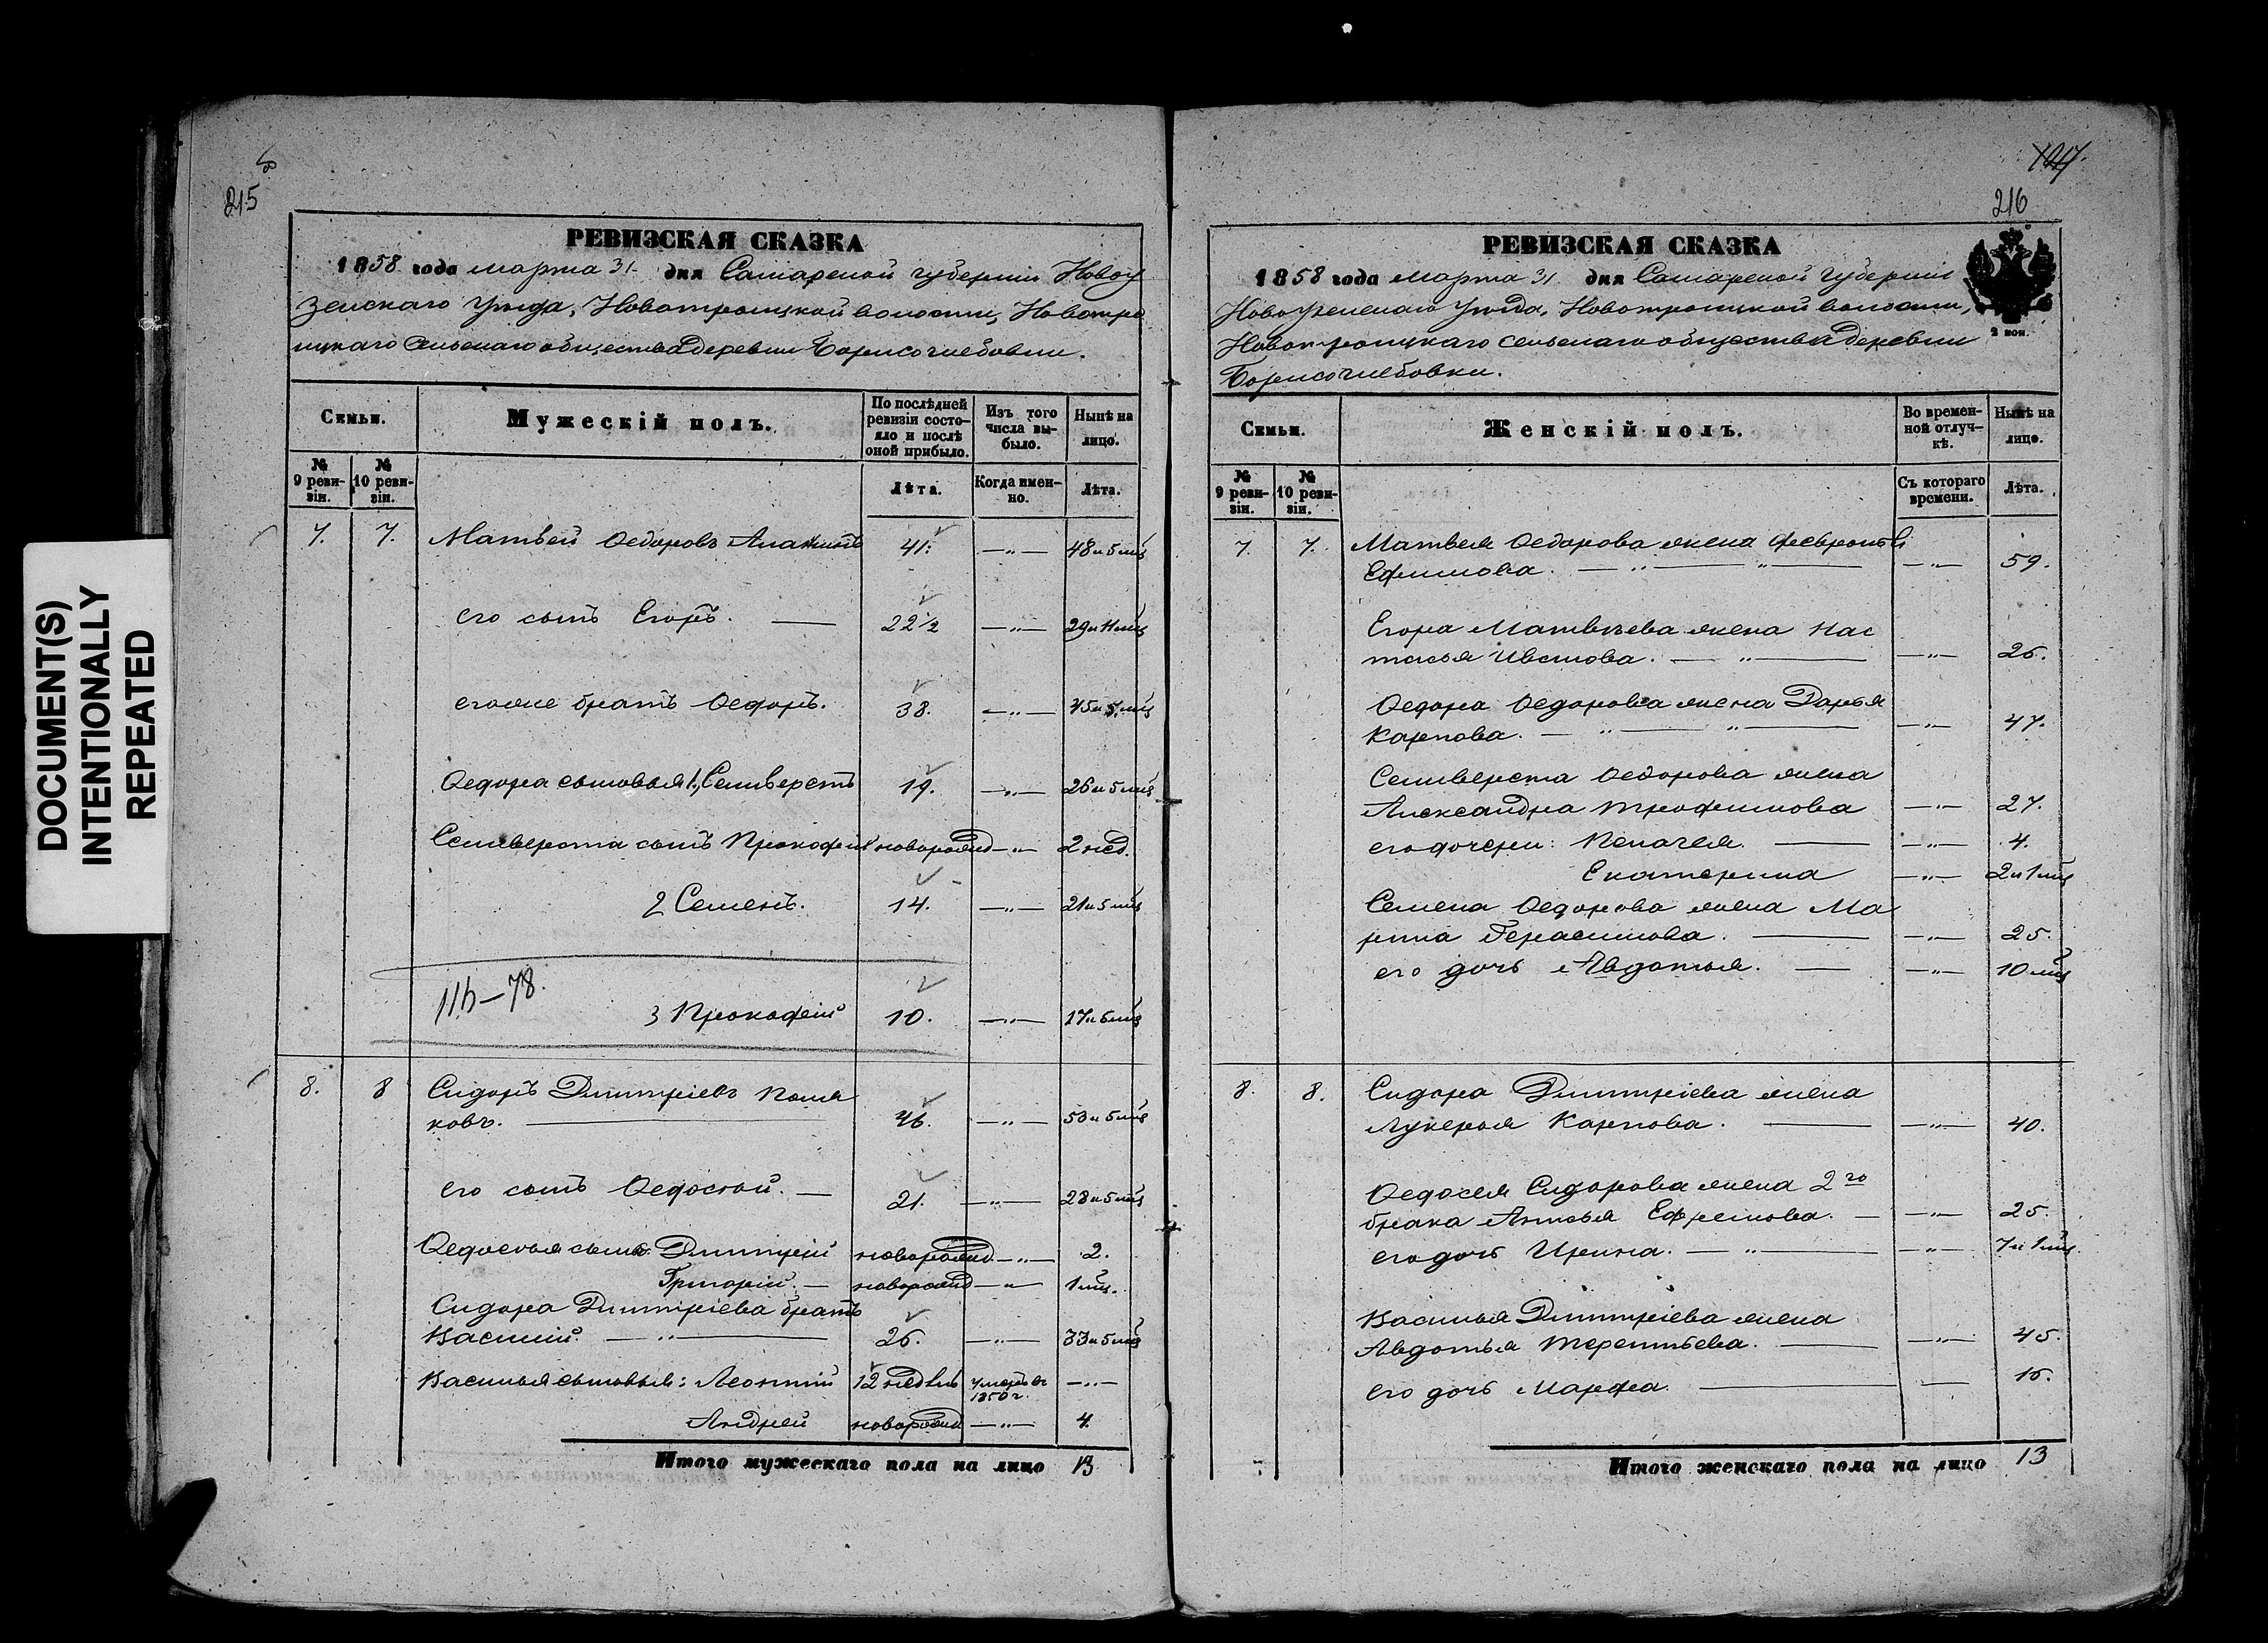 DOCUMENT(S)
INTENTIONALLY
REPEATED
215
РЕВИЗСКАЯ СКАЗКА
1858 года марта 31 дня Самарской губернии Новоу
зенскаго Уѣзда, Новотроицкой волости, Новотро
ицкаго Сельскаго общества деревни Борисоглебовки.
Семьи.
Мужескій полъ.
По послѣдней
ревизіи состо-
яло и послѣ
оной прибыло.
Изъ того
числа вы-
было.
Нынѣ на
лицо.
№
9 реви-
зіи.
№
10 реви-
зіи.
Лѣта.
Когда имен-
но.
Лѣта.
7. 7. Матвей Ѳедоровъ 41. —„— 48 и 5 мц
его сынъ Егоръ. — 22½ —„— 29 и 11 мц
егоже братъ Ѳедоръ. 38. —„— 45 и 5 мц
Ѳедора сыновья 1, Селиверстъ 19. —„— 26 и 5 мц
Селиверста сынъ Прокофий новорожд —„— 2 нед.
2 Семенъ. 14. —„— 21 и 5 мц
3 Прокофій 10. —„— 17 и 5 мц
8. 8 Сидоръ Дмитріевъ Поля
ковъ. — 46. —„— 53 и 5 мц
его сынъ Ѳедосѣй. — 21. —„— 28 и 5 мц
Ѳедосѣя сынъ: Дмитрій новорожд —„— 2.
Григорій. — новорожд —„— 1 мц.
Сидора Дмитріева братъ
Василій. —„— 26. —„— 33 и 5 мц
Василья сыновья: Леонтій 12 недѣль умеръ въ —„—
1850 г.
Андрей новорожд —„— 4.
Итого мужескаго пола на лицо 13
216
РЕВИЗСКАЯ СКАЗКА
1858 года марта 31 дня Самарской Губерніи
Новоузенскаго Уѣзда, Новотроицкой волости,
Новотроицкаго сельскаго общества деревни
Борисоглебовки.
2 коп.
Семьи.
Женскій полъ.
Во времен-
ной отлуч-
кѣ.
Нынѣ на
лицо.
№
9 реви-
зіи.
№
10 реви-
зіи.
Съ котораго
времени.
Лѣта.
7. 7. Матвея Ѳедорова жена
Ефимова. —„—„— —„— 59.
Егора Матвѣева жена Нас
тасья Иванова. —„— —„— 26.
Ѳедора Ѳедорова жена Дарья
Карпова. —„—„— —„— 47.
Селиверста Ѳедорова жена
Александра Трофимова —„— 27.
его дочери: Пелагея. — —„— 4.
Екатерина —„— 2 и 1 мц
Семена Ѳедорова жена Ма
рина Герасимова. — —„— 25.
его дочь Авдотья. — —„— 10 мц
8. 8. Сидора Дмитріева жена
Лукерья Карпова. — —„— 40.
Ѳедосея Сидорова жена 2го
брака Анисья Ефремова. — —„— 25.
его дочь Ирина. —„— —„— 7 и 1 мц.
Василья Дмитріева жена
Авдотья Терентьева. — —„— 45.
его дочь Марфа. — — 15.
Итого женскаго пола на лицо 13